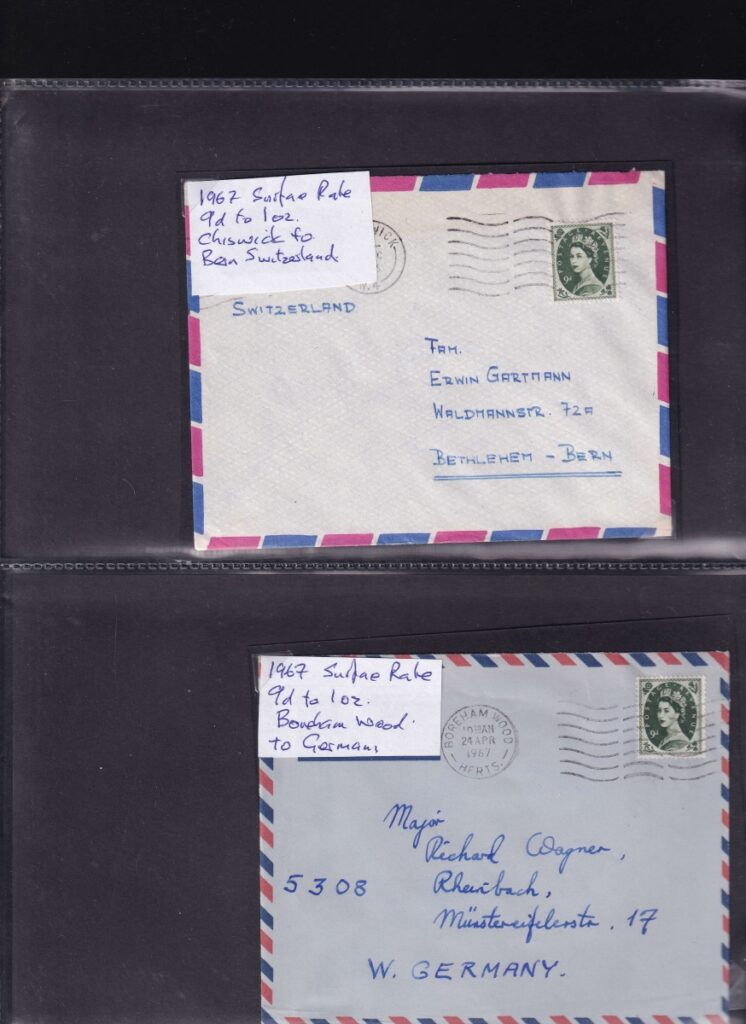 1967 Surface Rate
9d to 1oz.
Chiswick to
Bern Switzerland.
WICK
W.4
9d
SWITZERLAND
FAM.
ERWIN GARTMANN
WALDMANNSTR. 72A
BETHLEHEM - BERN
1967 Surface Rate
9d to 1oz.
Boreham Wood.
to Germany
BOREHAM WOOD
10 AM
24 APR
1967
HERTS.
9d
Major
Richard Wagner,
5308 Rheinbach,
Münstereifelerstr. 17
W. GERMANY.